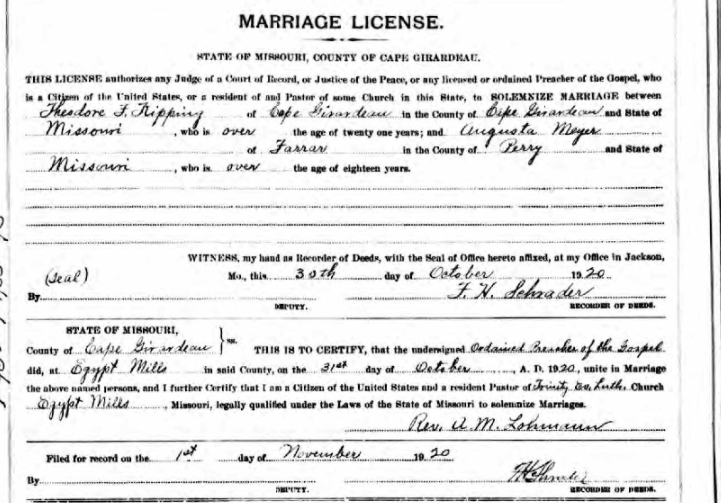 MARRIAGE LICENSE.
STATE OF MISSOURI, COUNTY OF CAPE GIRARDEAU.
THIS LICENSE authorizes any Judge of a Court of Record, or Justice of the Peace, or any licensed or ordained Preacher of the Gospel, who
is a Citizen of the United States, or a resident of and Pastor of some Church in this State, to SOLEMNIZE MARRIAGE between
Theodore F. Kipping of Cape Girardeau in the County of Cape Girardeau and State of
Missouri, who is over the age of twenty one years; and Augusta Meyer
of Farrar in the County of Perry and State of
Missouri, who is over the age of eighteen years.
WITNESS, my hand as Recorder of Deeds, with the Seal of Office hereto affixed, at my Office in Jackson,
(Seal) Mo., this 30th day of October 1920
By F. H. Schrader
DEPUTY. RECORDER OF DEEDS.
STATE OF MISSOURI,
County of Cape Girardeau } ss. THIS IS TO CERTIFY, that the undersigned Ordained Preacher of the Gospel
did, at Egypt Mills in said County, on the 31st day of October, A. D. 1920, unite in Marriage
the above named persons, and I further Certify that I am a Citizen of the United States and a resident Pastor of Trinity Ev. Luth. Church
Egypt Mills, Missouri, legally qualified under the Laws of the State of Missouri to solemnize Marriages.
Rev. A. M. Lohmann
Filed for record on the 1st day of November 1920
By
DEPUTY. RECORDER OF DEEDS.